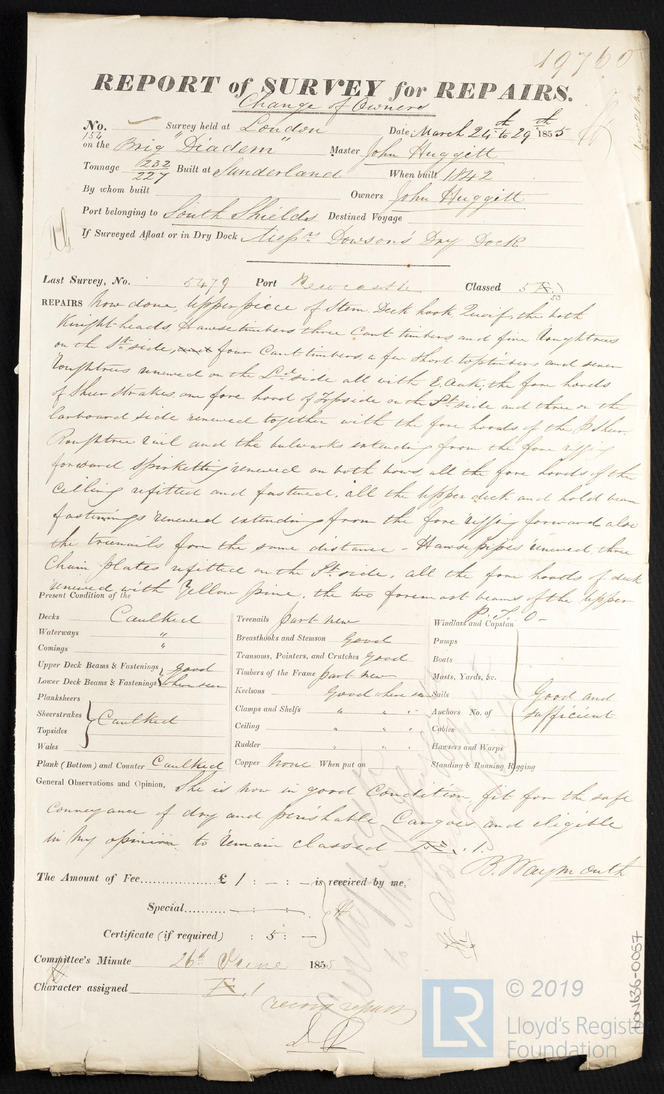 19760
REPORT of SURVEY for REPAIRS.
Change of Owners
No. 154 Survey held at London Date, March 24th to 29th 1855
on the Brig "Diadem" Master John Huggitt
Tonnage 232 227 Built at Sunderland When built 1842
By whom built Owners John Huggitt
Port belonging to South Shields Destined Voyage
If Surveyed Afloat or in Dry Dock Dowson's Dry Dock
Last Survey, No. 5479 Port Newcastle Classed 5
REPAIRS now done, upper piece of Stem, Deck hook the both
Knight-heads Hawsetimbers three Cant timbers and five Roughtrees
on the St. side, four Cant timbers a few short toptimbers and seven
Roughtrees renewed on the Ld. side all with the fore hoods
of Sheer Strakes one fore hood of Topside on the St. side and three on the
larboard side renewed together with the fore hoods of the
Roughtree rail and the bulwarks extending from the fore
forward Spirketting renewed on both bows, all the fore hoods of the
Ceiling refitted and fastened, all the upper deck and hold beam
fastenings renewed extending from the fore forward also
the treenails for the same distance - Hawse pipes renewed, three
Chain plates refitted on the St. side, all the fore hoods of deck
renewed with Yellow pine, the two foremost beams of the upper
P.T.O -
Present Condition of the
Decks Caulked
Waterways "
Comings "
Upper Deck Beams & Fastenings good
Lower Deck Beams & Fastenings where seen
Planksheers
Sheerstrakes
Topsides Caulked
Wales
Plank (Bottom) and Counter Caulked
Treenails part new
Breasthooks and Stemson Good
Transoms, Pointers, and Crutches Good
Timbers of the Frame part new
Keelsons Good where seen
Clamps and Shelfs " " "
Ceiling " " "
Rudder " " "
Copper None When put on
Windlass and Capstan
Pumps
Boats
Masts, Yards, &c.
Sails Good and
Anchors No. of sufficient
Cables
Hawsers and Warps
Standing & Running Rigging
General Observations and Opinion, She is now in good Condition, fit for the safe
conveyance of dry and perishable Cargoes and eligible
in my opinion to remain classed Æ. 1.
B. Waymouth
The Amount of Fee £ 1 : - : - is received by me,
Special - : - : -
Certificate (if required) : 5 : -
Committee's Minute 26th June 1855
Character assigned Æ. 1
record repairs
LON636-0057
LR
© 2019
Lloyd's Register
Foundation